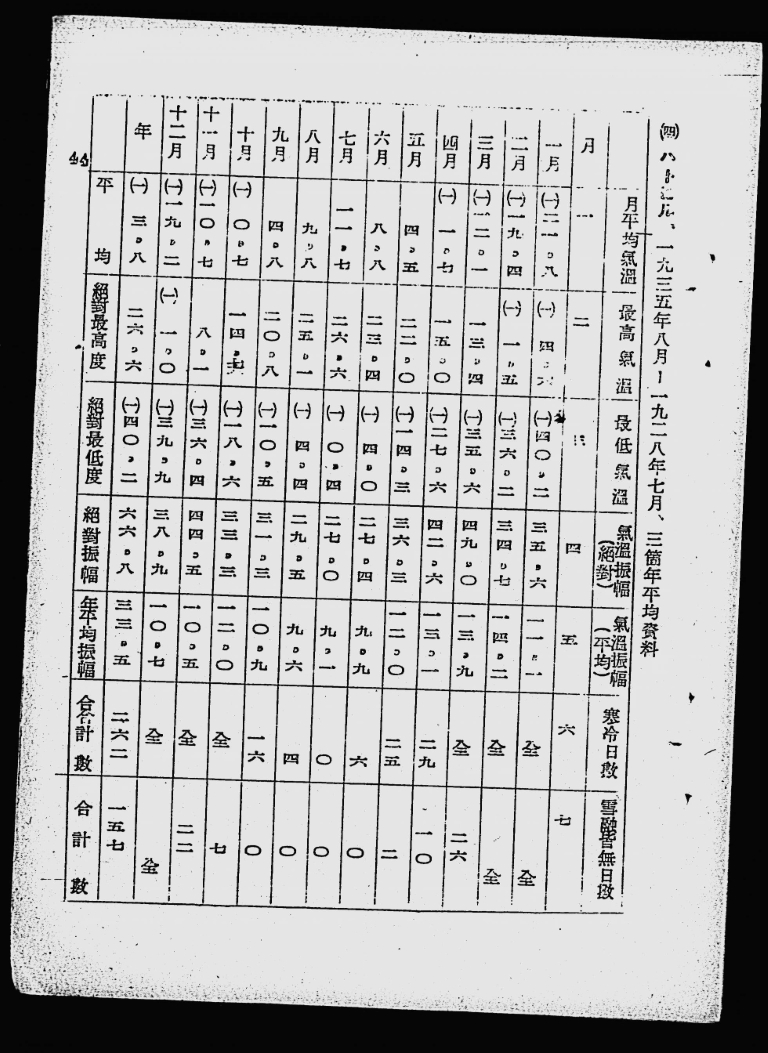 (四) 、一九三五年八月ー一九二八年七月、三箇年平均資料
月平均氣溫 最高氣溫 最低氣溫 氣溫振幅(絕對) 氣溫振幅(平均) 寒冷日數 雪融皆無日數
月 一 二 三 四 五 六 七
一月 (一)二一.八 (一)四.六 (一)四〇.二 三五.六 一一.一 全 全
二月 (一)一九.四 (一)一.五 (一)三六.二 三四.七 一四.二 全 全
三月 (一)一二.一 一三.四 (一)三五.六 四九.〇 一三.九 全 二六
四月 (一)一.七 一五.〇 (一)二七.六 四二.六 一三.一 二九 一〇
五月 四.五 二二.〇 (一)一四.三 三六.三 一二.〇 二五 二
六月 八.八 二三.四 (一)四.〇 二七.四 九.九 六 〇
七月 一一.七 二六.六 (一)〇.四 二七.〇 九.一 〇 〇
八月 九.八 二五.一 (一)四.四 二九.五 九.六 四 〇
九月 四.八 二〇.八 (一)一〇.五 三一.三 一〇.九 一六 〇
十月 (一)〇.七 一四.七 (一)一八.六 三三.三 一二.〇 全 七
十一月 (一)一〇.七 八.一 (一)三六.四 四四.五 一〇.五 全 二二
十二月 (一)一九.二 (一)一.〇 (一)三九.九 三八.九 一〇.七 全 全
年 (一)三.八 二六.六 (一)四〇.二 六六.八 三三.五 二六二 一五七
平均 絕對最高度 絕對最低度 絕對振幅 年平均振幅 合計數 合計數
44